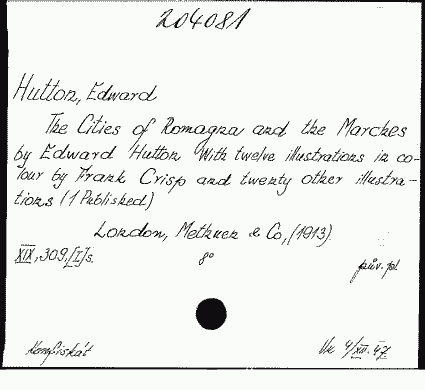 204081
Hutton, Edward
The Cities of Romagna and the Marches
by Edward Hutton With twelve illustrations in co-
lour by Frank Crisp and twenty other illustra-
tions (1 Published)
London, Methuen & Co, (1913).
XIX, 309, [I] s. 8° pův. pl.
Konfiskát Vk 4/XII. 47